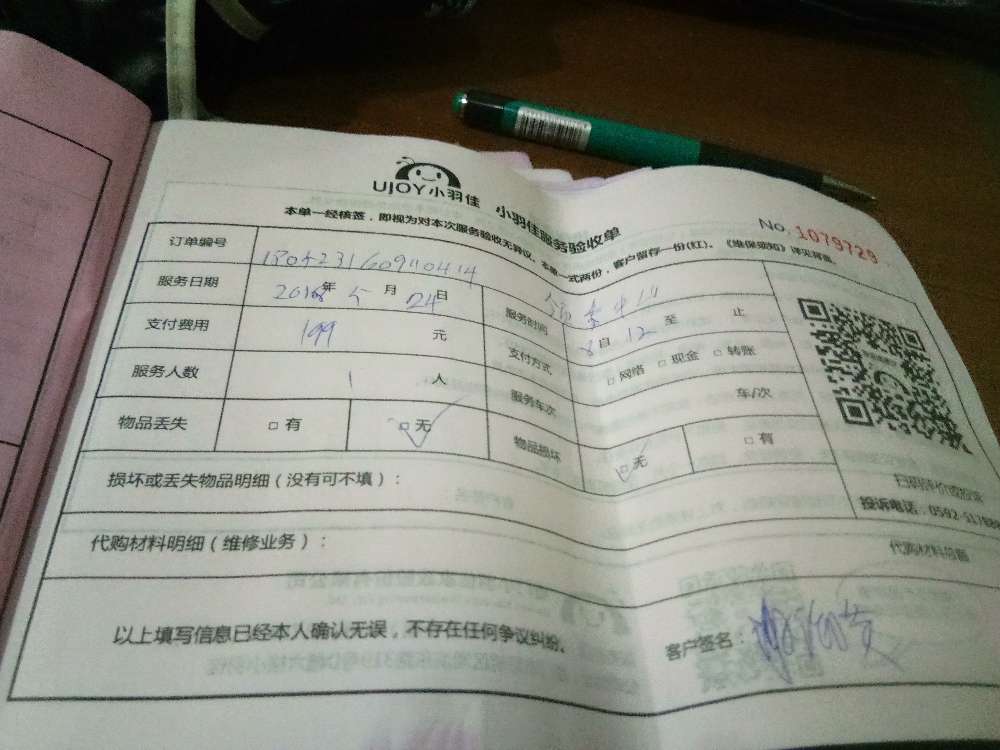 UJOY小羽佳 小羽佳服务验收单
No. 1079729
本单一经核签，即视为对本次服务验收无异议。本单一式两份，客户留存一份(红)。《维保须知》详见背面。
订单编号
服务日期 2018年 5月 24日 服务时间
8自 12至 止
支付费用 199 元 支付方式 □ 网络 □ 现金 □ 转账
服务人数 1 人 服务车次 车/次
物品丢失 □ 有 □ 无 物品损坏 □ 无 □ 有
扫码评价或投诉
损坏或丢失物品明细（没有可不填）：
投诉电话：0592-51788
代购材料明细（维修业务）：
代购材料总额
以上填写信息已经本人确认无误，不存在任何争议纠纷。
客户签名：